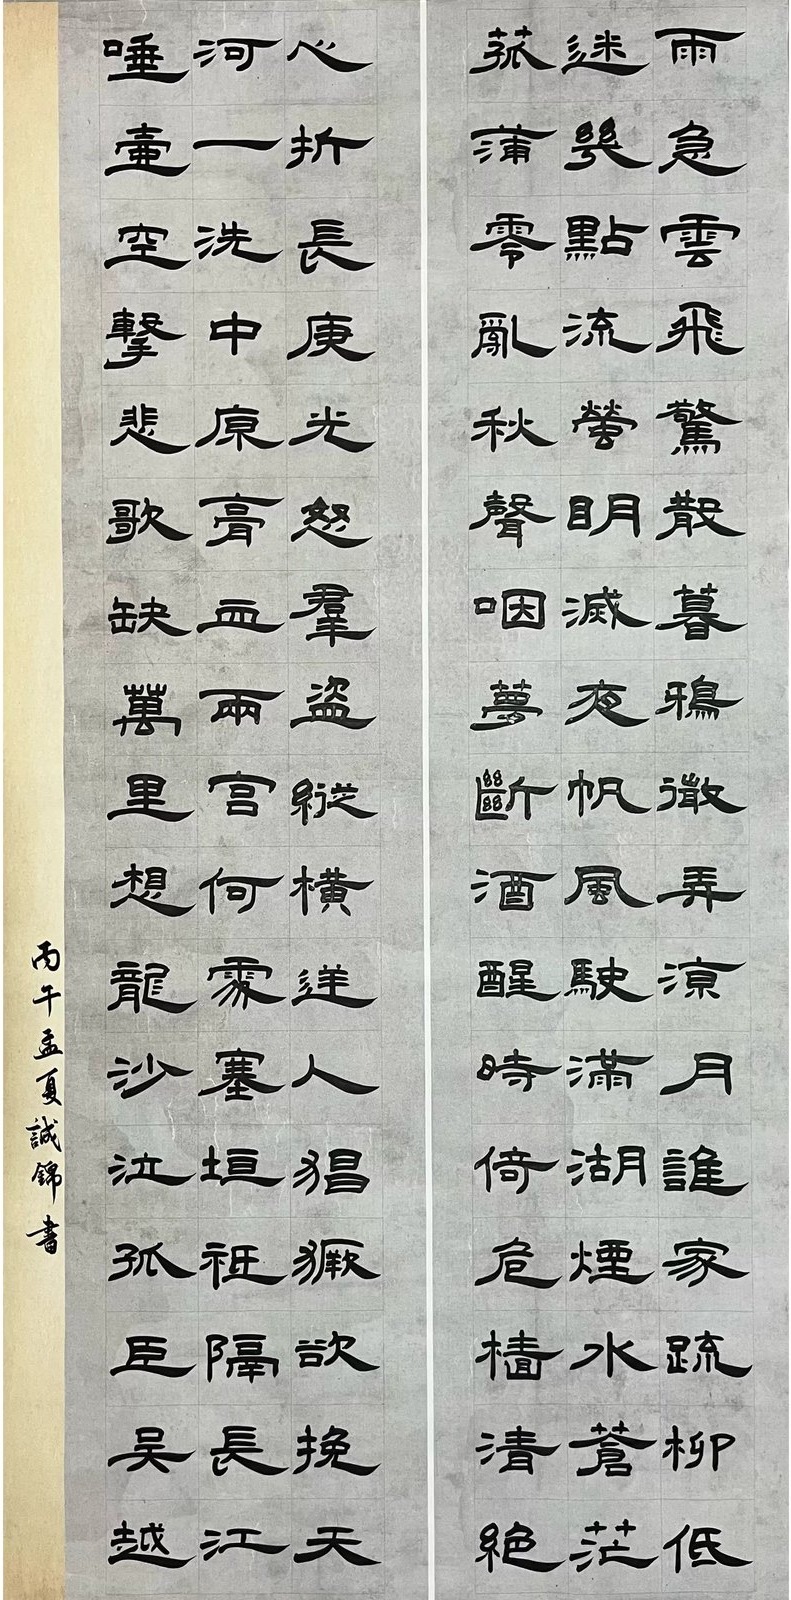 雨急雲飛驚散暮鴉微弄涼月誰家疏柳低
迷幾點流螢明滅夜帆風駛滿湖煙水蒼茫
菰蒲零亂秋聲咽夢斷酒醒時倚危檣清絕
心折長庚光怒羣盜縱橫逆人猖獗欲挽天
河一洗中原膏血兩宮何處塞垣祗隔長江
唾壺空擊悲歌缺萬里想龍沙泣孤臣吳越
丙午孟夏誠錦書